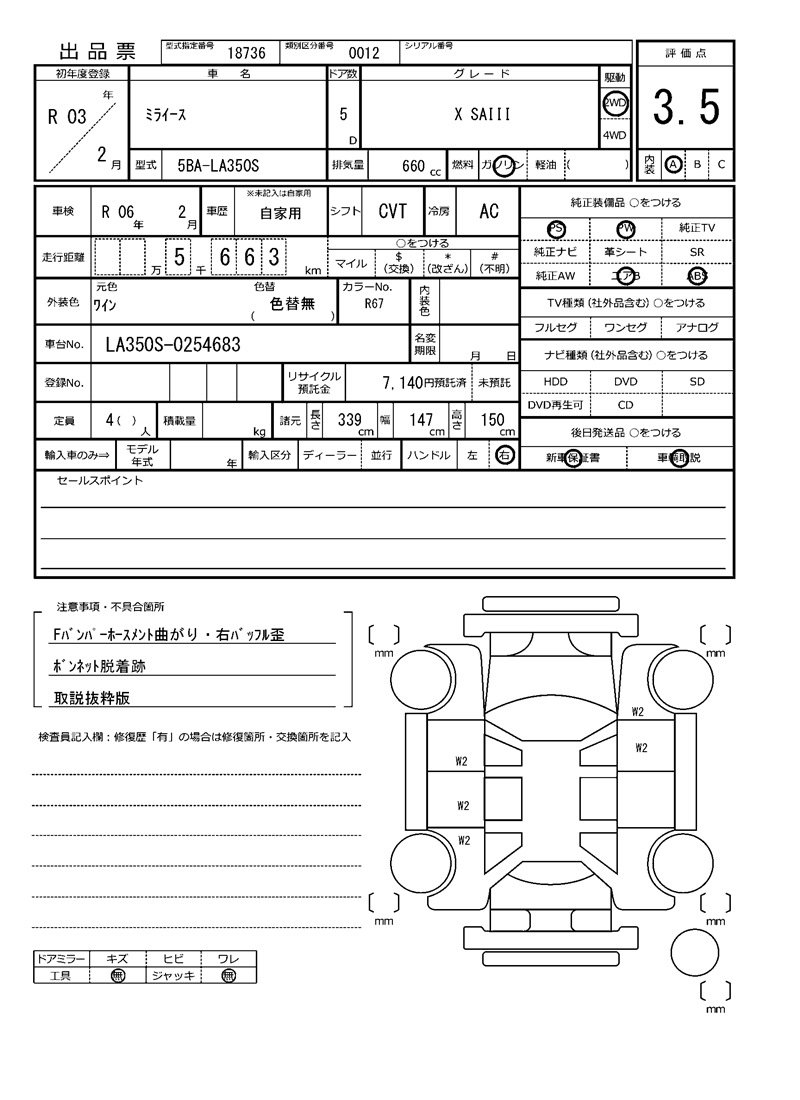 出品票
型式指定番号 18736 類別区分番号 0012 シリアル番号
評価点
3.5
内装 A B C
初年度登録 車名 ドア数 グレード 駆動
R 03 年 2 月
ミライース
5 D
X SAIII
2WD
4WD
型式 5BA-LA350S 排気量 660 cc 燃料 ガソリン 軽油 ( )
車検 R 06 年 2 月 車歴 ※未記入は自家用 自家用 シフト CVT 冷房 AC
走行距離 万 5 千 6 6 3 km
○をつける
マイル $(交換) *(改ざん) #(不明)
外装色 元色 ワイン 色替 ( 色替無 ) カラーNo. R67 内装色
車台No. LA350S-0254683 名変期限 月 日
登録No. リサイクル預託金 7,140円預託済 未預託
定員 4( )人 積載量 kg 諸元 長さ 339 cm 幅 147 cm 高さ 150 cm
輸入車のみ⇒ モデル年式 年 輸入区分 ディーラー 並行 ハンドル 左 右
純正装備品 ○をつける
PS PW 純正TV
純正ナビ 革シート SR
純正AW エアB ABS
TV種類(社外品含む)○をつける
フルセグ ワンセグ アナログ
ナビ種類(社外品含む)○をつける
HDD DVD SD
DVD再生可 CD
後日発送品 ○をつける
新車保証書 車輌取説
セールスポイント
注意事項・不具合箇所
Fバンパーホースメント曲がり・右バッフル歪
ボンネット脱着跡
取説抜粋版
検査員記入欄：修復歴「有」の場合は修復箇所・交換箇所を記入
mm mm
W2
W2
W2
W2
W2
mm mm
mm
ドアミラー キズ ヒビ ワレ
工具 無 ジャッキ 無